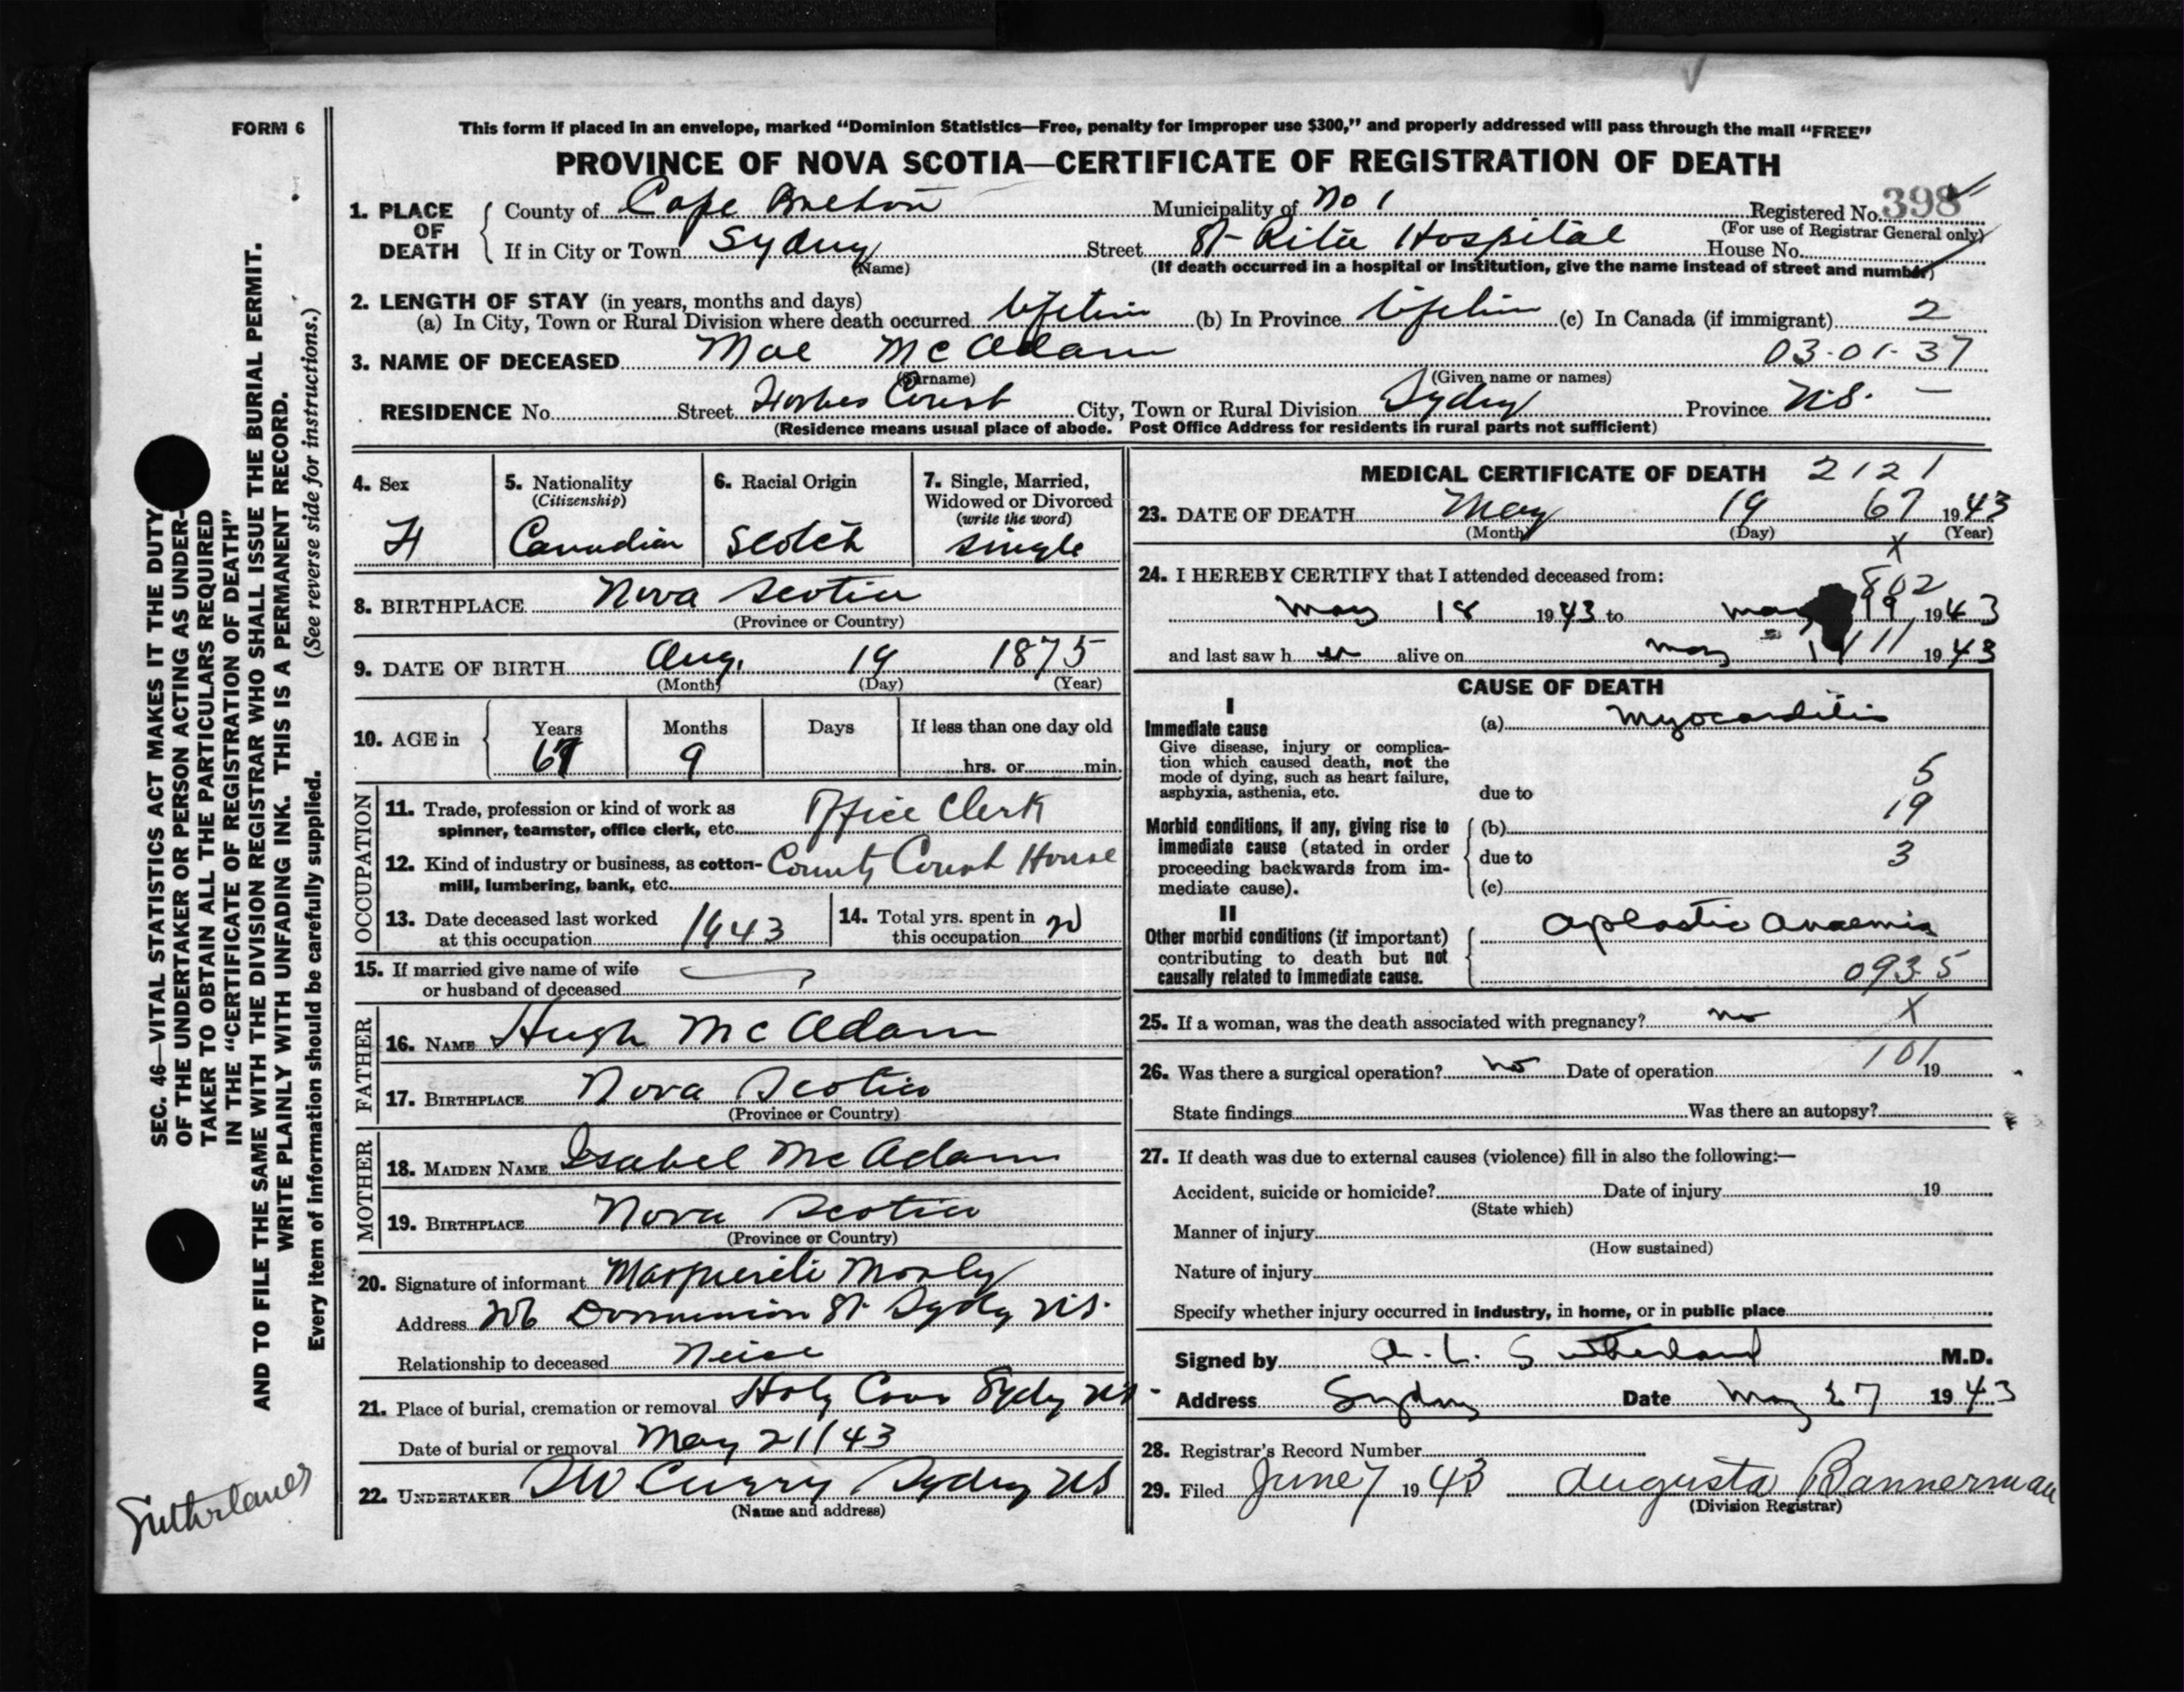 FORM 6
This form if placed in an envelope, marked "Dominion Statistics—Free, penalty for improper use $300," and properly addressed will pass through the mail "FREE"
PROVINCE OF NOVA SCOTIA—CERTIFICATE OF REGISTRATION OF DEATH
1. PLACE OF DEATH { County of Cape Breton Municipality of No 1 Registered No. 398
(For use of Registrar General only)
If in City or Town Sydney Street St Rita Hospital House No.
(Name) (If death occurred in a hospital or institution, give the name instead of street and number)
2. LENGTH OF STAY (in years, months and days)
(a) In City, Town or Rural Division where death occurred lifetime (b) In Province lifetime (c) In Canada (if immigrant) 2
3. NAME OF DECEASED Mae McAdam 03-01-37
(Surname) (Given name or names)
RESIDENCE No. Street Forbes Court City, Town or Rural Division Sydney Province N.S. —
(Residence means usual place of abode. Post Office Address for residents in rural parts not sufficient)
4. Sex
F
5. Nationality
(Citizenship)
Canadian
6. Racial Origin
Scotch
7. Single, Married,
Widowed or Divorced
(write the word)
Single
8. BIRTHPLACE Nova Scotia
(Province or Country)
9. DATE OF BIRTH Aug. 19 1875
(Month) (Day) (Year)
10. AGE in { Years Months Days If less than one day old
67 9 hrs. or min.
OCCUPATION
11. Trade, profession or kind of work as
spinner, teamster, office clerk, etc. Office Clerk
12. Kind of industry or business, as cotton-
mill, lumbering, bank, etc. County Court House
13. Date deceased last worked
at this occupation 1943
14. Total yrs. spent in
this occupation
15. If married give name of wife
or husband of deceased
FATHER
16. NAME Hugh McAdam
17. BIRTHPLACE Nova Scotia
(Province or Country)
MOTHER
18. MAIDEN NAME Isabel McAdam
19. BIRTHPLACE Nova Scotia
(Province or Country)
20. Signature of informant Marguerite
Address Dominion St. Sydney N.S.
Relationship to deceased Neice
21. Place of burial, cremation or removal Holy Cross Sydney NS
Date of burial or removal May 21/43
22. UNDERTAKER Curry Sydney NS
(Name and address)
MEDICAL CERTIFICATE OF DEATH 2121
23. DATE OF DEATH May 19 67 1943
(Month) (Day) (Year)
X
24. I HEREBY CERTIFY that I attended deceased from:
802
May 18 1943 to May 19, 1943
and last saw her alive on May 1943
CAUSE OF DEATH
I
Immediate cause
Give disease, injury or complica-
tion which caused death, not the
mode of dying, such as heart failure,
asphyxia, asthenia, etc.
(a) Myocarditis
5
due to
19
Morbid conditions, if any, giving rise to
immediate cause (stated in order
proceeding backwards from im-
mediate cause).
(b)
due to 3
(c)
II
Other morbid conditions (if important)
contributing to death but not
causally related to immediate cause.
Aplastic Anaemia
093.5
25. If a woman, was the death associated with pregnancy? no X
26. Was there a surgical operation? no Date of operation 101 19
State findings Was there an autopsy?
27. If death was due to external causes (violence) fill in also the following:—
Accident, suicide or homicide? Date of injury 19
(State which)
Manner of injury
(How sustained)
Nature of injury
Specify whether injury occurred in industry, in home, or in public place
Signed by A. L. Sutherland M.D.
Address Sydney Date May 27 1943
28. Registrar's Record Number
29. Filed June 7 1943 Augusta Bannerman
(Division Registrar)
SEC. 46—VITAL STATISTICS ACT MAKES IT THE DUTY
OF THE UNDERTAKER OR PERSON ACTING AS UNDER-
TAKER TO OBTAIN ALL THE PARTICULARS REQUIRED
IN THE "CERTIFICATE OF REGISTRATION OF DEATH"
AND TO FILE THE SAME WITH THE DIVISION REGISTRAR WHO SHALL ISSUE THE BURIAL PERMIT.
WRITE PLAINLY WITH UNFADING INK. THIS IS A PERMANENT RECORD.
Every item of information should be carefully supplied. (See reverse side for instructions.)
Sutherland